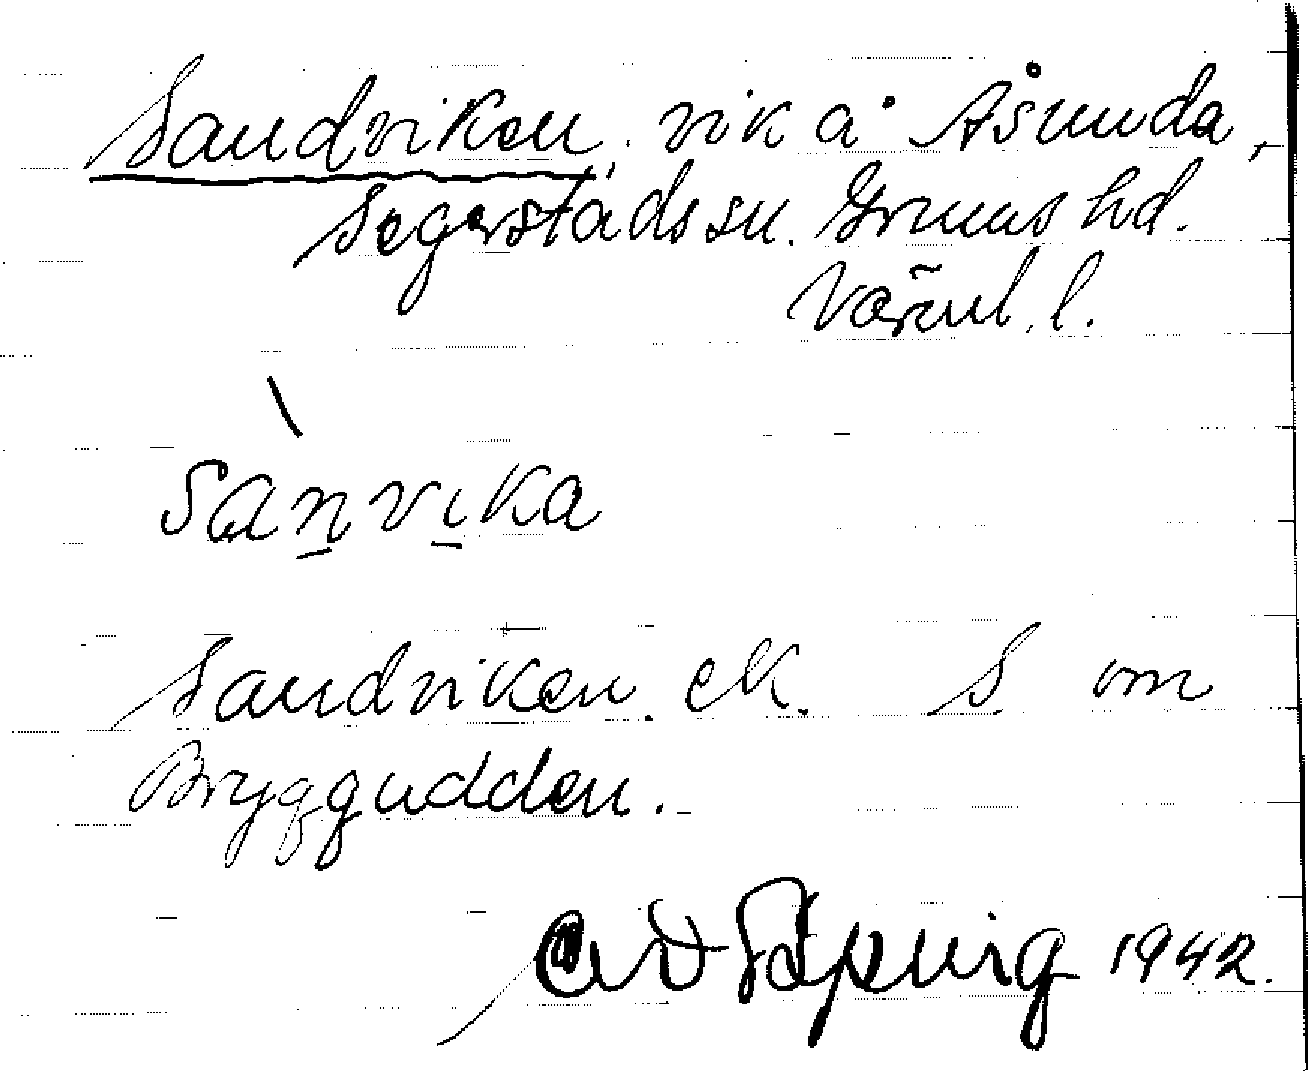 Sandviken, vik å Åsunda,
Segerstads sn. Grums hd.
Värml. l.
sanvika
Sandviken. ek. S om
Bryggudden.
1942.